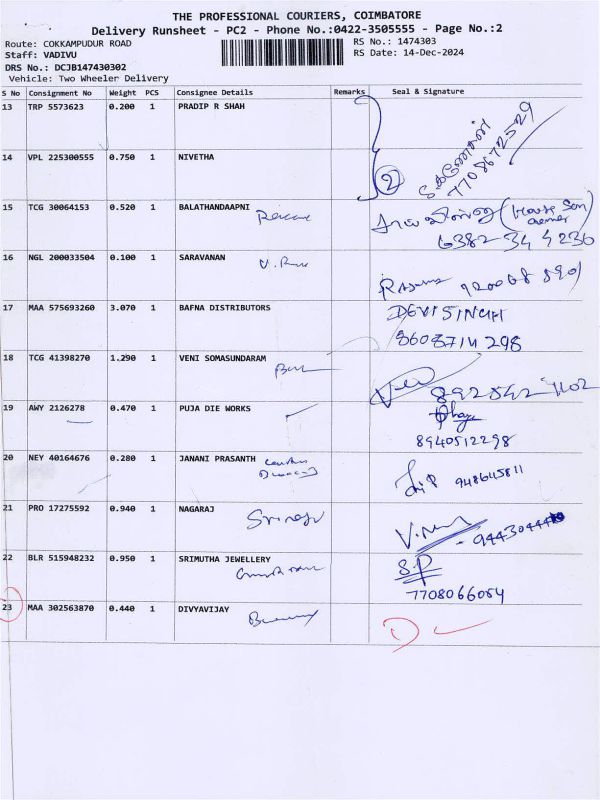 THE PROFESSIONAL COURIERS, COIMBATORE
Delivery Runsheet - PC2 - Phone No.:0422-3505555 - Page No.:2
Route: COKKAMPUDUR ROAD
RS No.: 1474303
Staff: VADIVU
RS Date: 14-Dec-2024
DRS No.: DCJB147430302
Vehicle: Two Wheeler Delivery
S No Consignment No Weight PCS Consignee Details Remarks Seal & Signature
13 TRP 5573623 0.200 1 PRADIP R SHAH
7708672529
14 VPL 225300555 0.750 1 NIVETHA
2
15 TCG 30064153 0.520 1 BALATHANDAAPNI
(House
owner)
6382 34 4236
16 NGL 200033504 0.100 1 SARAVANAN
17 MAA 575693260 3.070 1 BAFNA DISTRIBUTORS
DEVI SINGH
8608714298
18 TCG 41398270 1.290 1 VENI SOMASUNDARAM
892542 1102
19 AWY 2126278 0.470 1 PUJA DIE WORKS
8940512298
20 NEY 40164676 0.280 1 JANANI PRASANTH
948645811
21 PRO 17275592 0.940 1 NAGARAJ
22 BLR 515948232 0.950 1 SRIMUTHA JEWELLERY
S.P
7708066054
23 MAA 302563870 0.440 1 DIVYAVIJAY
D